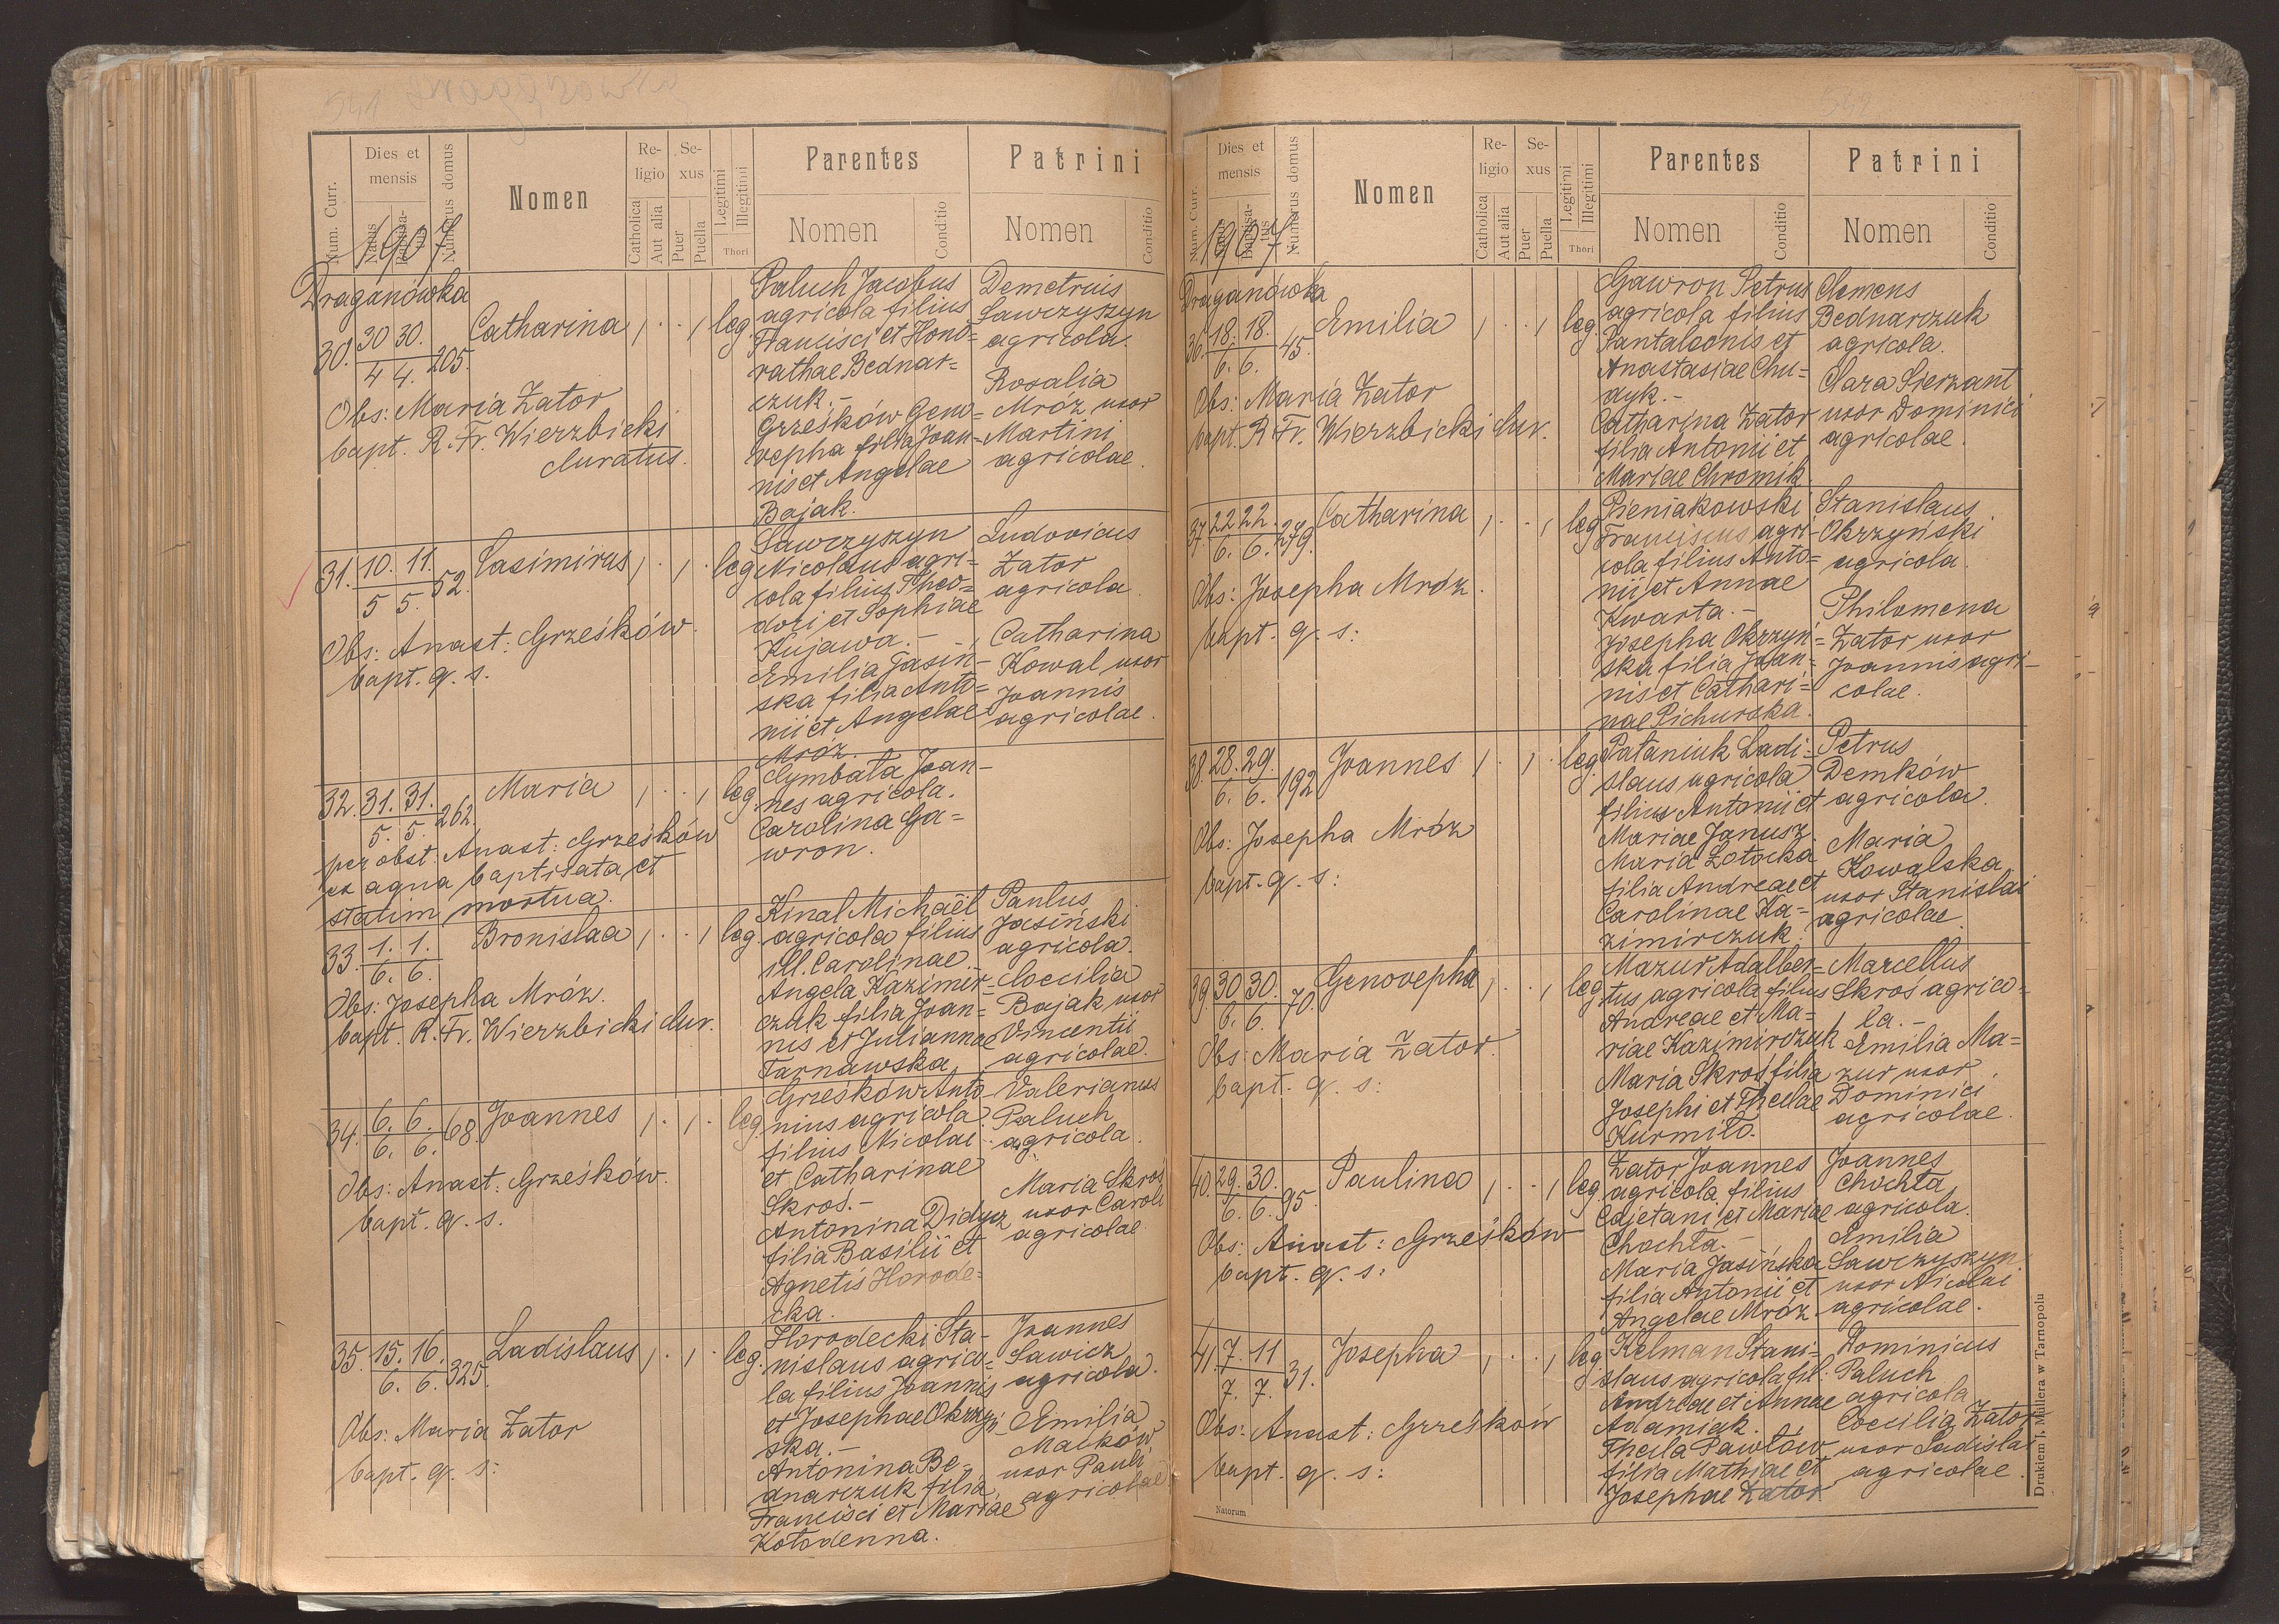 541 Draganówka
Num. Curr.
Dies et mensis
Natus
Baptisa-
Numerus domus
Nomen
Re-
ligio
Catholica
Aut alia
Se-
xus
Puer
Puella
Legitimi
Illegitimi
Thori
Parentes
Nomen
Conditio
Patrini
Nomen
Conditio
1907
Draganówka
30. 30 30. 205. Catharina 1 . . 1 leg.
4 4.
Obs: Maria Zator
bapt. R. Fr. Wierzbicki
Curatus.
Paluch Jacobus
agricola filius
Francisci et Hono=
rathae Bednar=
czuk.-
Grześków Geno=
vepha filia Joan=
nis et Angelae
Bajak.
Demetrius
Ławczyszyn
agricola.
Rosalia
Mróz uxor
Martini
agricolae.
31. 10. 11. 52. Casimirus 1 . 1 . leg
5 5.
Obs: Anast: Grześków.
bapt. q. s.
Ławczyszyn
Nicolaus agri-
cola filius Theo=
dori et Sophiae
Kujawa.-
Emilia Jasiń-
ska filia Anto=
nii et Angelae
Mróz.
Ludovicus
Zator
agricola.
Catharina
Kowal uxor
Joannis
agricolae.
32. 31. 31. 262. Maria 1 . . 1 leg.
5. 5.
per obst. Anast: Grześków
ex aqua baptisata et
statim mortua.
Cymbała Joan-
nes agricola.
Carolina Ga=
wron.
33. 1. 1. Bronislaa 1 . . 1 leg.
6. 6.
Obs: Josepha Mróz.
bapt. R. Fr. Wierzbicki Cur.
Kinal Michaël
agricola filius
ill. Carolinae.
Angela Kazimir-
czuk filia Joan=
nis et Juliannae
Tarnawska
Paulus
Jasiński
agricola.
Coecilia
Bajak uxor
Vincentii
agricolae.
34. 6. 6. 68. Joannes 1 . 1 . leg.
6. 6.
Obs: Anast: Grześków.
bapt. q. s.
Grześków Anto-
nius agricola
filius Nicolai
et Catharinae
Skros.-
Antonina Didycz
filia Basilii et
Agnetis Horode-
cka.
Valerianus
Paluch
agricola.
Maria Skros
uxor Caroli
agricolae
35. 15. 16. 325. Ladislaus 1 . 1 . leg.
6. 6.
Obs: Maria Zator
bapt. q. s:
Horodecki Sta-
nislaus agrico=
la filius Joannis
et Josephae Okrzyń-
ska.-
Antonina Be-
dnarczuk filia
Francisci et Mariae
Kołodenna.
Joannes
Sawicz
agricola.
Emilia
Maćków
uxor Pauli
agricolae
Num. Curr.
Dies et
mensis
Numerus domus
Nomen
Re-
ligio
Catholica
Aut alia
Se-
xus
Puer
Puella
Legitimi
Illegitimi
Thori
Parentes
Nomen
Conditio
Patrini
Nomen
Conditio
1907
Draganówka
36. 18. 18. 45. Emilia 1 . . 1 leg.
6. 6.
Obs: Maria Zator
bapt. R Fr. Wierzbicki Cur.
Gawron Petrus
agricola filius
Pantaleonis et
Anastasiae Chu=
dyk.-
Catharina Zator
filia Antonii et
Mariae Chromik
Clemens
Bednarczuk
agricola.
Clara Sierzant
uxor Dominici
agricolae.
37 22 22. 279. Catharina 1 . . 1 leg
6. 6.
Obs: Josepha Mróz.
bapt. q. s:
Pieniakowski
Franciscus agri-
cola filius Anto=
nii et Annae
Kwarta.-
Josepha Okrzyń=
ska filia Joan-
nis et Cathari=
nae Pichurska.
Stanislaus
Okrzyński
agricola.
Philomena
Zator uxor
Joannis agri-
colae.
38. 28. 29. 192 Joannes 1 . 1 . leg.
6. 6.
Obs: Josepha Mróz
bapt. q. s:
Pataniuk Ladi=
slaus agricola
filius Antonii et
Mariae Janusz
Maria Łotocka
filia Andreae et
Carolinae Ka=
zimirczuk.
Petrus
Demków
agricola.
Maria
Kowalska
uxor Stanislai
agricolae.
39. 30 30. 70. Genovepha 1 . . 1 leg
6. 6.
Obs: Maria Zator.
bapt. q. s:
Mazur Adalber=
tus agricola filius
Andreae et Ma=
riae Kazimirczuk
Maria Skros filia
Josephi et Theclae
Kurmiło.
Marcellus
Skros agrico-
la.-
Emilia Ma=
zur uxor
Dominici
agricolae.
40. 29. 30. 95. Paulina 1 . . 1 leg.
6. 6.
Obs: Anast: Grześków
bapt. q. s:
Zator Joannes
agricola filius
Cajetani et Mariae
Chochła.-
Maria Jasińska
filia Antonii et
Angelae Mróz.
Joannes
Chochła
agricola.
Emilia
Ławczyszyn
uxor Nicolai
agricolae.
41. 7. 11 31. Josepha 1 . . 1 leg.
7. 7.
Obs: Anast: Grześków
bapt. q. s:
Kelman Stani=
slaus agricola fil:
Andreae et Annae
Adamiak.
Thecla Pawłów
filia Mathiae et
Josephae Zator
Dominicus
Paluch
agricola
Coecilia Zator
uxor Ladislai
agricolae.
Natorum
Drukiem J. Müllera w Tarnopolu